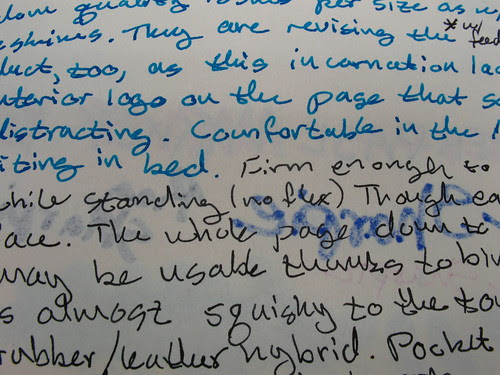 quality issues per size as
They are revising the *w/
feed
duct, too, as this incarnation lac
nterior logo on the page that s
distracting. Comfortable in the
iting in bed. Firm enough to
while standing (no flex) Though ea
lace. The whole page down to
may be usable thanks to bin
s almost squishy to the to
rubber/leather hybrid. Pocket